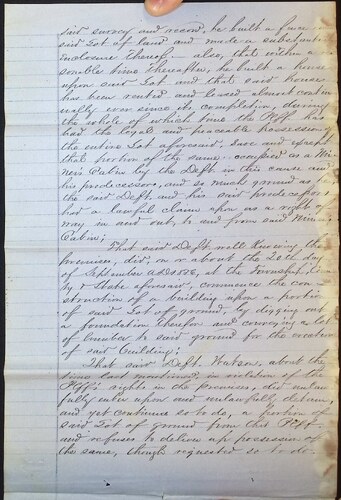 said survey and record, he built a fence
said Lot of land and made a substantial
enclosure thereof. - Also, that within a
sonable time thereafter, he built a house
upon said Lot, and that said house
has been rented and leased almost contin
ually ever since its completion, during
the whole of which time the Plff. has
had the loyal and peaceable possession
the entire Lot aforesaid, save and except
that portion of the same occupied as a Min
ner's Cabin by the Deft. in this cause and
his predecessors, and so much ground as
the said Deft. and his said predecessors
had a lawful claim upon as a right of
way in and out, to and from said Miner's
Cabin;
That said Deft. well knowing the
premises, did, on or about the 20th day
of September AD 1878, at the Township,
ty & State aforesaid, commence the con-
struction of a building upon a portion
of said Lot of ground, by digging out
a foundation therefor and conveying a lot
of lumber to said ground for the erection
of said building;
That said Deft. Watson, about the
time last mentioned, in violation of the
Plff's rights in the premises, did unlaw-
fully enter upon and unlawfully detain,
and yet continues so to do, a portion of
said Lot of ground from this Plff.
and refuses to deliver up possession of
the same, though requested so to do.